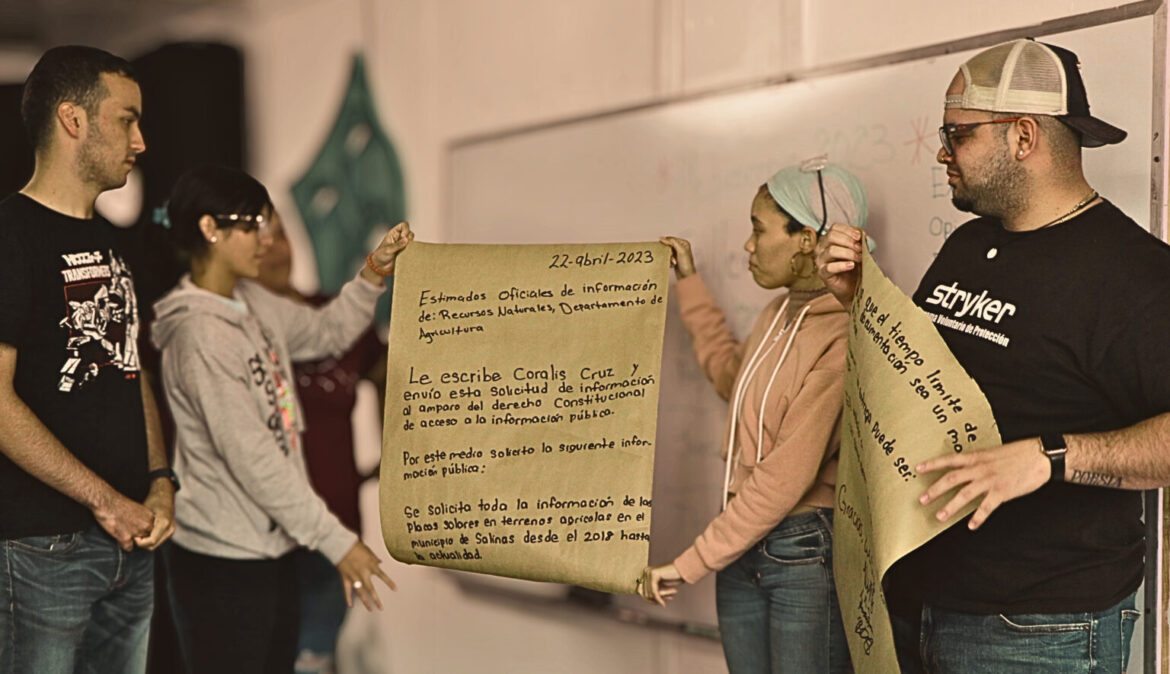 22-abril-2023
Estimados Oficiales de información
de: Recursos Naturales, Departamento de
Agricultura
Le escribe Coralis Cruz y
envío esta solicitud de información
al amparo del derecho Constitucional
de acceso a la información pública.
Por este medio solicito la siguiente infor-
mación pública:
Se solicita toda la información de las
placas solares en terrenos agrícolas en el
municipio de Salinas desde el 2018 hasta
la actualidad.
que el tiempo límite de
sea un
puede ser:
TRANSFORMERS
stryker
Voluntario de Protección
POESÍA
2023